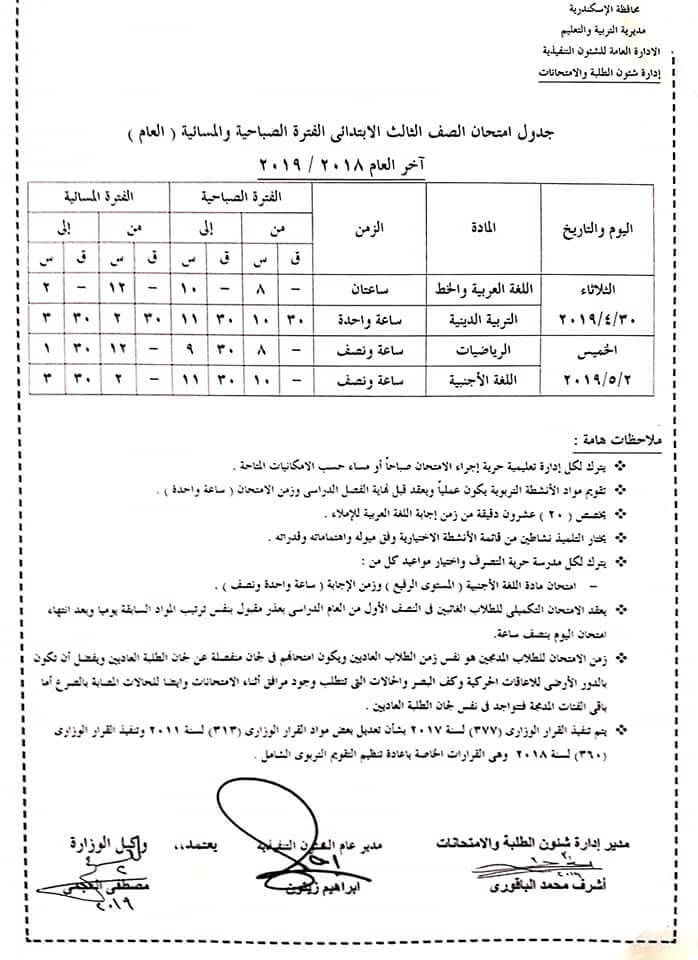 محافظة الإسكندرية
مديرية التربية والتعليم
الادارة العامة للشئون التنفيذية
إدارة شئون الطلبة والامتحانات
جدول امتحان الصف الثالث الابتدائى الفترة الصباحية والمسائية ( العام )
آخر العام ٢٠١٨ / ٢٠١٩
اليوم والتاريخ المادة الزمن الفترة الصباحية الفترة المسائية
من إلى من إلى
ق س ق س ق س ق س
الثلاثاء اللغة العربية والخط ساعتان – ٨ – ١٠ – ١٢ – ٢
٢٠١٩/٤/٣٠ التربية الدينية ساعة واحدة ٣٠ ١٠ ٣٠ ١١ ٣٠ ٢ ٣٠ ٣
الخميس الرياضيات ساعة ونصف – ٨ ٣٠ ٩ – ١٢ ٣٠ ١
٢٠١٩/٥/٢ اللغة الأجنبية ساعة ونصف – ١٠ ٣٠ ١١ – ٢ ٣٠ ٣
ملاحظات هامة :
❖ يترك لكل إدارة تعليمية حرية إجراء الامتحان صباحاً أو مساء حسب الامكانيات المتاحة .
❖ تقويم مواد الأنشطة التربوية يكون عملياً ويعقد قبل نهاية الفصل الدراسى وزمن الامتحان ( ساعة واحدة ) .
❖ يخصص ( ٢٠ ) عشرون دقيقة من زمن إجابة اللغة العربية للإملاء .
❖ يختار التلميذ نشاطين من قائمة الأنشطة الاختيارية وفق ميوله واهتماماته وقدراته .
❖ يترك لكل مدرسة حرية التصرف واختيار مواعيد كل من :
– امتحان مادة اللغة الأجنبية ( المستوى الرفيع ) وزمن الإجابة ( ساعة واحدة ونصف ) .
❖ يعقد الامتحان التكميلى للطلاب الغائبين فى النصف الأول من العام الدراسى بعذر مقبول بنفس ترتيب المواد السابقة يوميا وبعد انتهاء
امتحان اليوم بنصف ساعة.
❖ زمن الامتحان للطلاب المدمجين هو نفس زمن الطلاب العاديين ويكون امتحانهم فى لجان منفصلة عن لجان الطلبة العاديين ويفضل أن تكون
بالدور الأرضى للاعاقات الحركية وكف البصر والحالات التى تتطلب وجود مرافق أثناء الامتحانات وايضا للحالات المصابة بالصرع أما
باقى الفئات المدمجة فتتواجد فى نفس لجان الطلبة العاديين .
❖ يتم تنفيذ القرار الوزارى (٣٧٧) لسنة ٢٠١٧ بشأن تعديل بعض مواد القرار الوزارى (٣١٣) لسنة ٢٠١١ وتنفيذ القرار الوزارى
(٣٦٠) لسنة ٢٠١٨ وهى القرارات الخاصة باعادة تنظيم التقويم التربوى الشامل .
مدير إدارة شئون الطلبة والامتحانات مدير عام الشئون التنفيذية يعتمد،، وكيل الوزارة
أشرف محمد الباقورى ابراهيم زيتون مصطفى العجمى
٢٠١٩